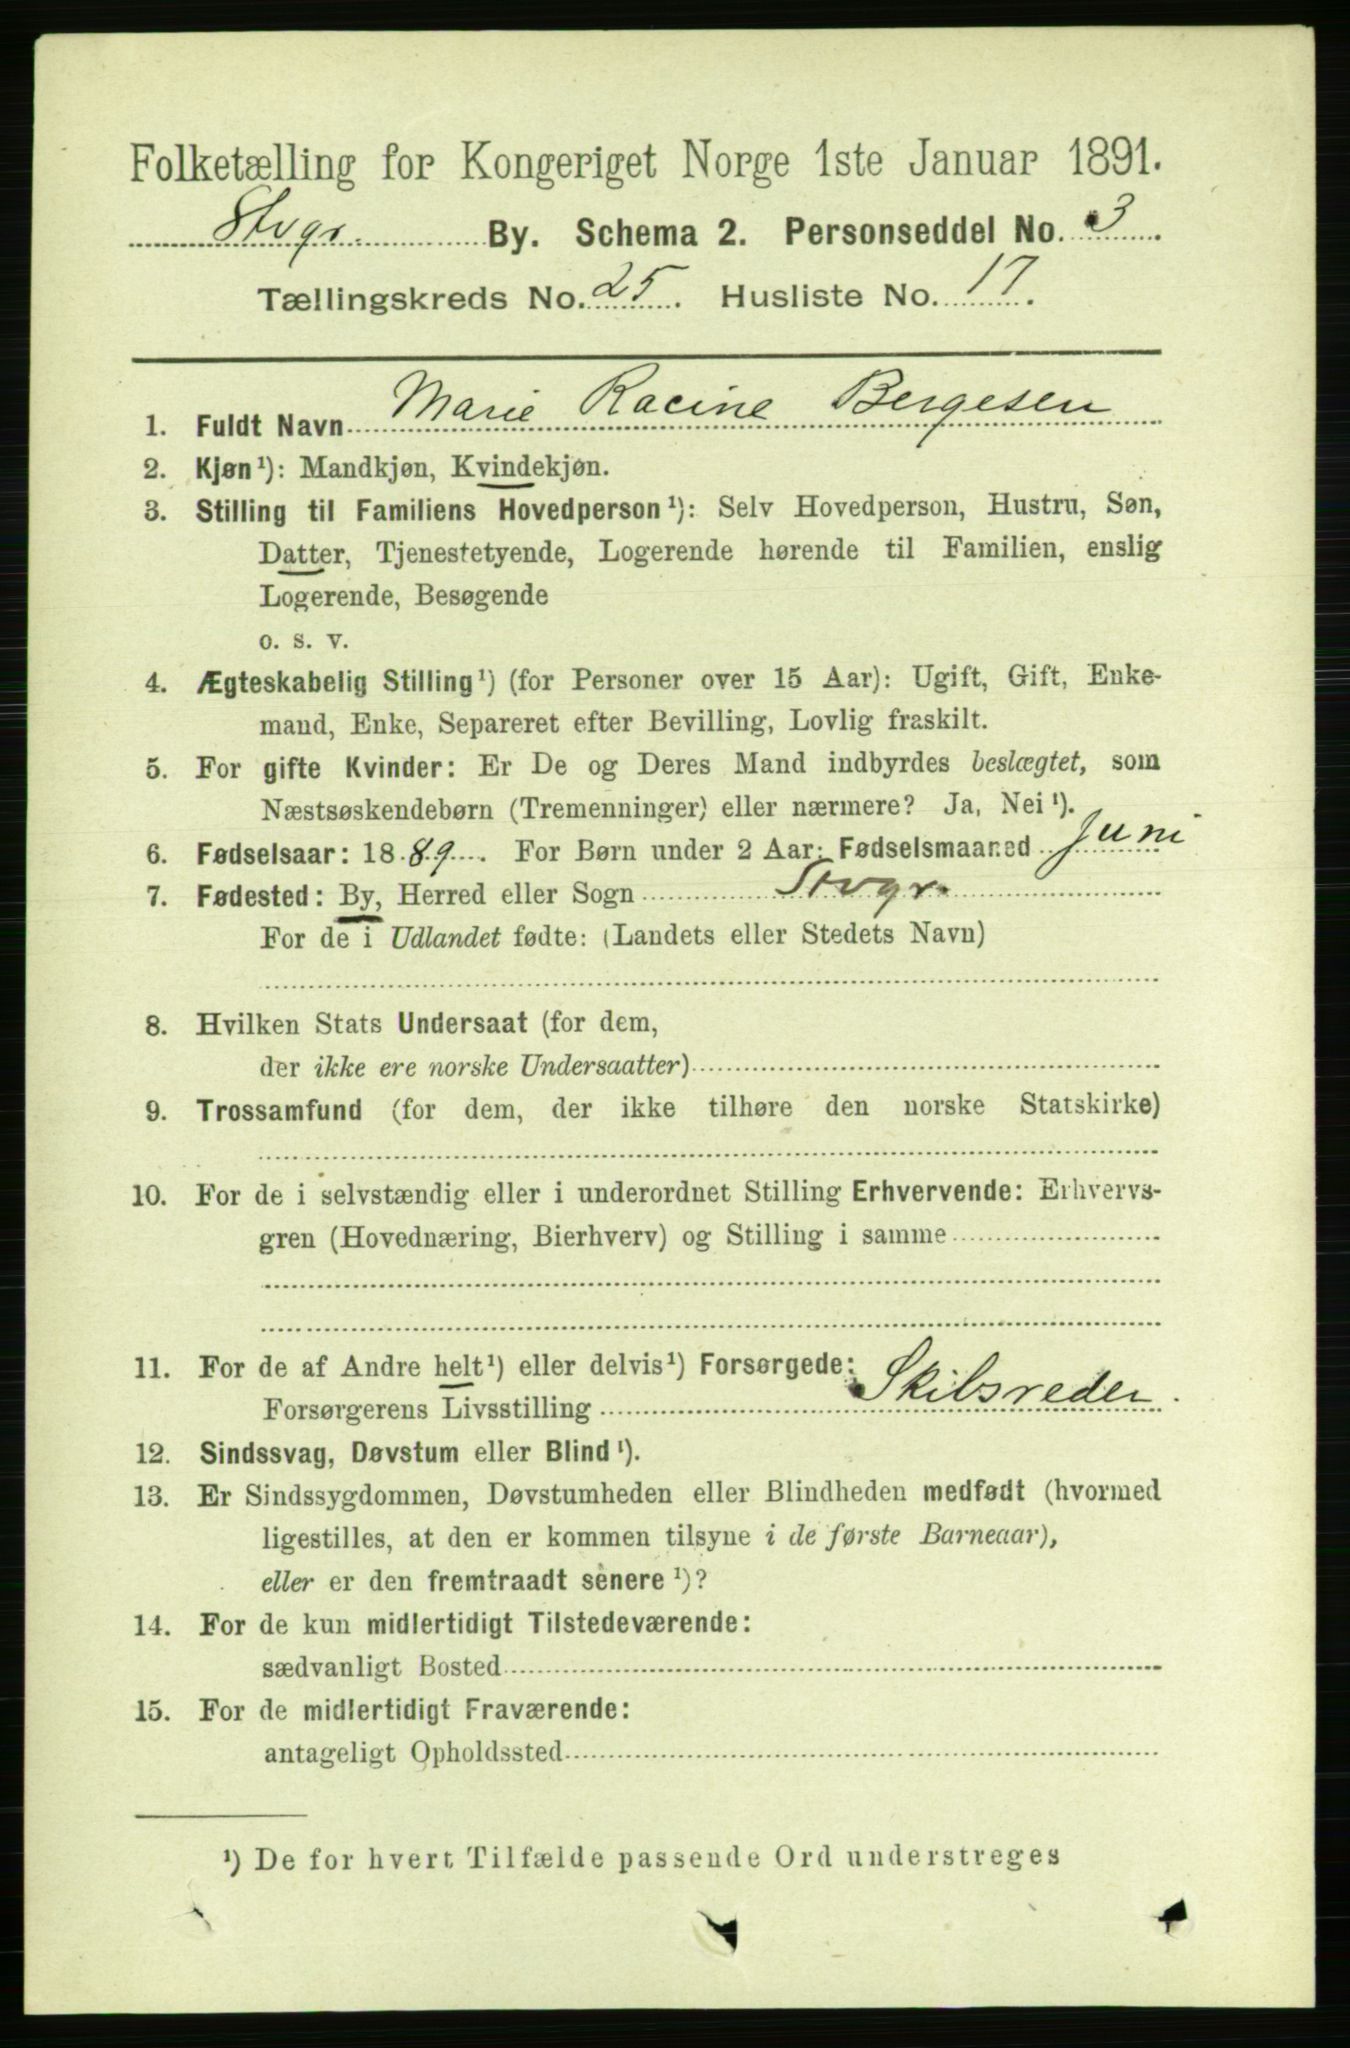 Folketælling for Kongeriget Norge 1ste Januar 1891.
Stvgr. By. Schema 2. Personseddel No. 3.
Tællingskreds No. 25. Husliste No. 17.
1. Fuldt Navn Marie Racine Bergesen
2. Kjøn¹): Mandkjøn, Kvindekjøn.
3. Stilling til Familiens Hovedperson¹): Selv Hovedperson, Hustru, Søn,
Datter, Tjenestetyende, Logerende hørende til Familien, enslig
Logerende, Besøgende
o. s. v.
4. Ægteskabelig Stilling¹) (for Personer over 15 Aar): Ugift, Gift, Enke-
mand, Enke, Separeret efter Bevilling, Lovlig fraskilt.
5. For gifte Kvinder: Er De og Deres Mand indbyrdes beslægtet, som
Næstsøskendebørn (Tremenninger) eller nærmere? Ja, Nei¹).
6. Fødselsaar: 1889. For Børn under 2 Aar: Fødselsmaaned Juni
7. Fødested: By, Herred eller Sogn Stvgr.
For de i Udlandet fødte: (Landets eller Stedets Navn)
8. Hvilken Stats Undersaat (for dem,
der ikke ere norske Undersaatter)
9. Trossamfund (for dem, der ikke tilhøre den norske Statskirke)
10. For de i selvstændig eller i underordnet Stilling Erhvervende: Erhvervs-
gren (Hovednæring, Bierhverv) og Stilling i samme
11. For de af Andre helt¹) eller delvis¹) Forsørgede:
Forsørgerens Livsstilling Skibsreder.
12. Sindssvag, Døvstum eller Blind¹).
13. Er Sindssygdommen, Døvstumheden eller Blindheden medfødt (hvormed
ligestilles, at den er kommen tilsyne i de første Barneaar),
eller er den fremtraadt senere¹)?
14. For de kun midlertidigt Tilstedeværende:
sædvanligt Bosted
15. For de midlertidigt Fraværende:
antageligt Opholdssted
¹) De for hvert Tilfælde passende Ord understreges